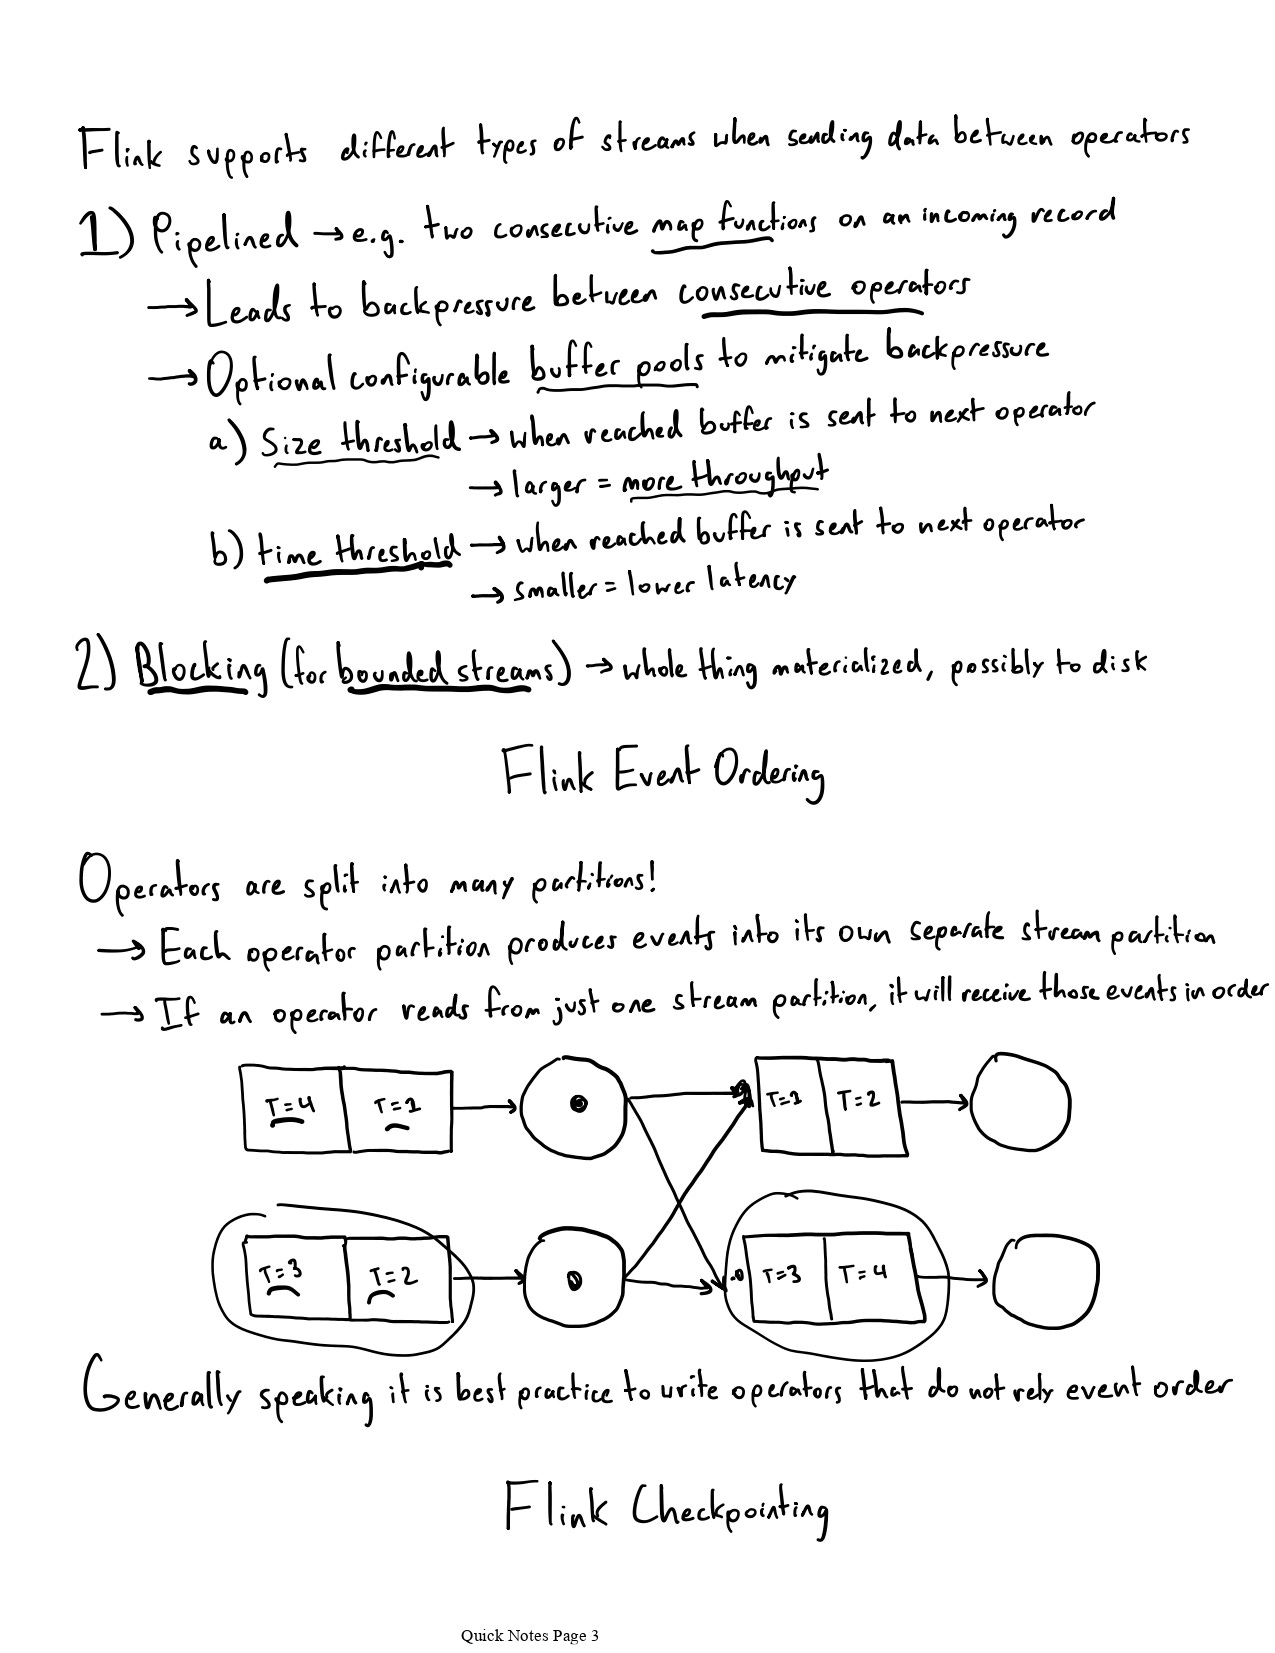 Flink supports different types of streams when sending data between operators
1) Pipelined → e.g. two consecutive map functions on an incoming record
→ Leads to backpressure between consecutive operators
→ Optional configurable buffer pools to mitigate backpressure
a) Size threshold → when reached buffer is sent to next operator
→ larger = more throughput
b) time threshold → when reached buffer is sent to next operator
→ smaller = lower latency
2) Blocking (for bounded streams) → whole thing materialized, possibly to disk
Flink Event Ordering
Operators are split into many partitions!
→ Each operator partition produces events into its own separate stream partition
→ If an operator reads from just one stream partition, it will receive those events in order
T=4 T=1 T=1 T=2
T=3 T=2 T=3 T=4
Generally speaking it is best practice to write operators that do not rely event order
Flink Checkpointing
Quick Notes Page 3